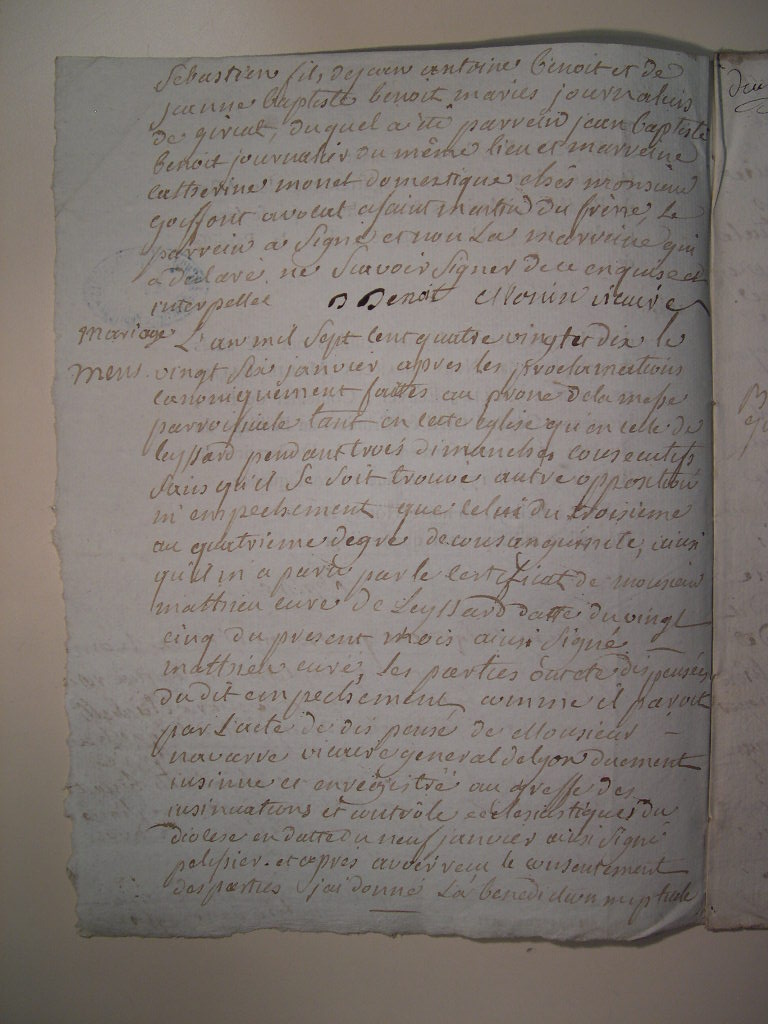 Sebastien fils dejean antoine benoit et de
jeanne baptiste benoit maries journaliers
de giriat, duquel a été parrein jean baptiste
benoit journalier du même lieu et marreine
catherine monet domestique chés monsieur
goiffont avocat a saint martin du frêne, le
parrein a signé et non la marreine qui
a déclaré ne sçavoir signer de ce enquise et
interpellée Benoit vicaire
Mariage L'an mil sept cent quatre vingt et dix le
vingt six janvier apres les proclamations
canoniquement faittes au prone dela messe
parroissiale tant en cette église qu'en celle de
leyssard pendant trois dimanches consecutifs
sans qu'il se soit trouvé autre opposition
ni empechement que celui du troisieme
au quatrieme degré de consanguinité, ainsi
qu'il m'a paru par le certificat de monsieur
mathieu curé de Leyssard datté du vingt
cinq du present mois ainsi signé
mathieu curé, les parties ont été dispensées
du dit empechement comme il paroit
par l'acte de dispense de Monsieur
navarre vicaire general de lyon duement
insinué et enrégistré au greffe des
insinuations et contrôle ecclesiastiques du
diocese en datte du neuf janvier ainsi signé
pelissier. et apres avoir reçu le consentement
des parties j'ai donné la benediction nuptiale